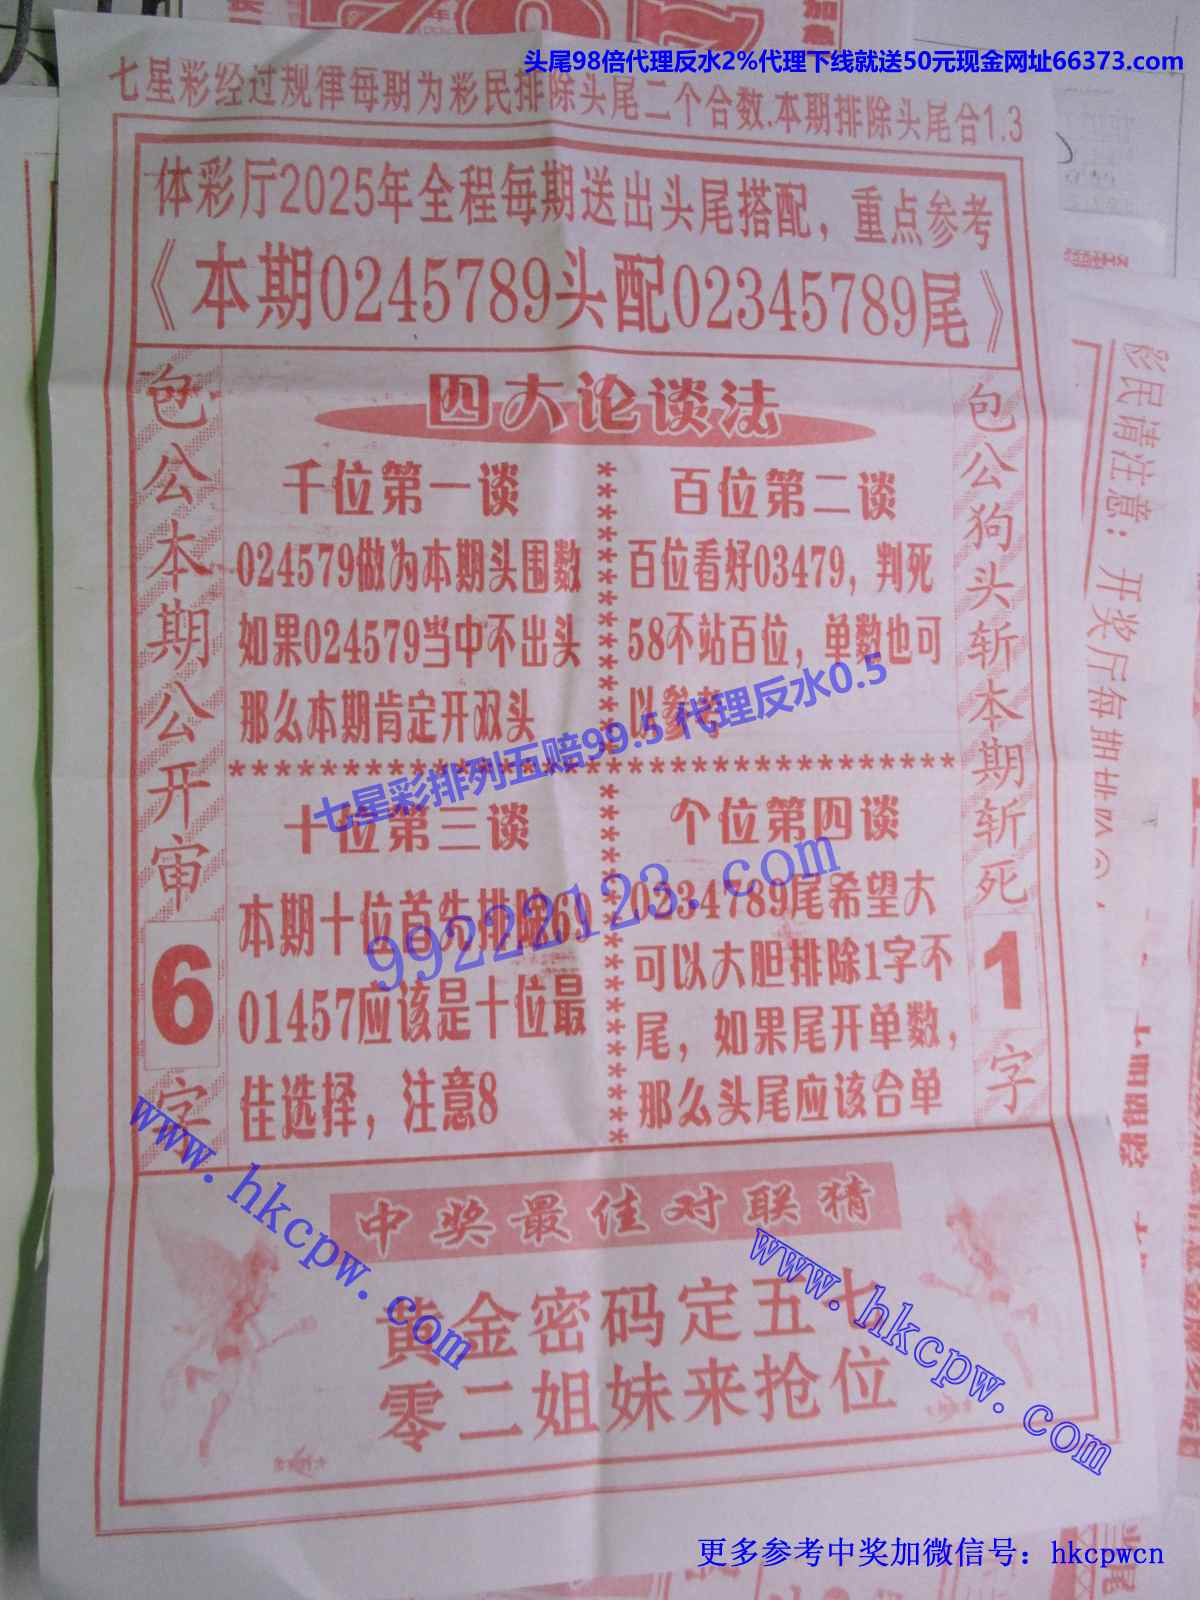 头尾98倍代理反水2%代理下线就送50元现金网址66373.com
七星彩经过规律每期为彩民排除头尾二个合数.本期排除头尾合1.3
体彩厅2025年全程每期送出头尾搭配，重点参考
《本期0245789头配02345789尾》
包公本期公开审
6
字
四大论谈法
千位第一谈
024579做为本期头围数
如果024579当中不出头
那么本期肯定开双头
百位第二谈
百位看好03479，判死
58不站百位，单数也可
以参考
七星彩排列五赔99.5 代理反水0.5
十位第三谈
本期十位首先排除69
01457应该是十位最
佳选择，注意8
个位第四谈
0234789尾希望大
可以大胆排除1字不
尾，如果尾开单数，
那么头尾应该合单
99222123.com
包公狗头斩本期斩死
1
字
www.hkcpw.com
www.hkcpw.com
中奖最佳对联猜
黄金密码定五七
零二姐妹来抢位
彩民请注意：开奖厅每期
更多参考中奖加微信号：hkcpwcn